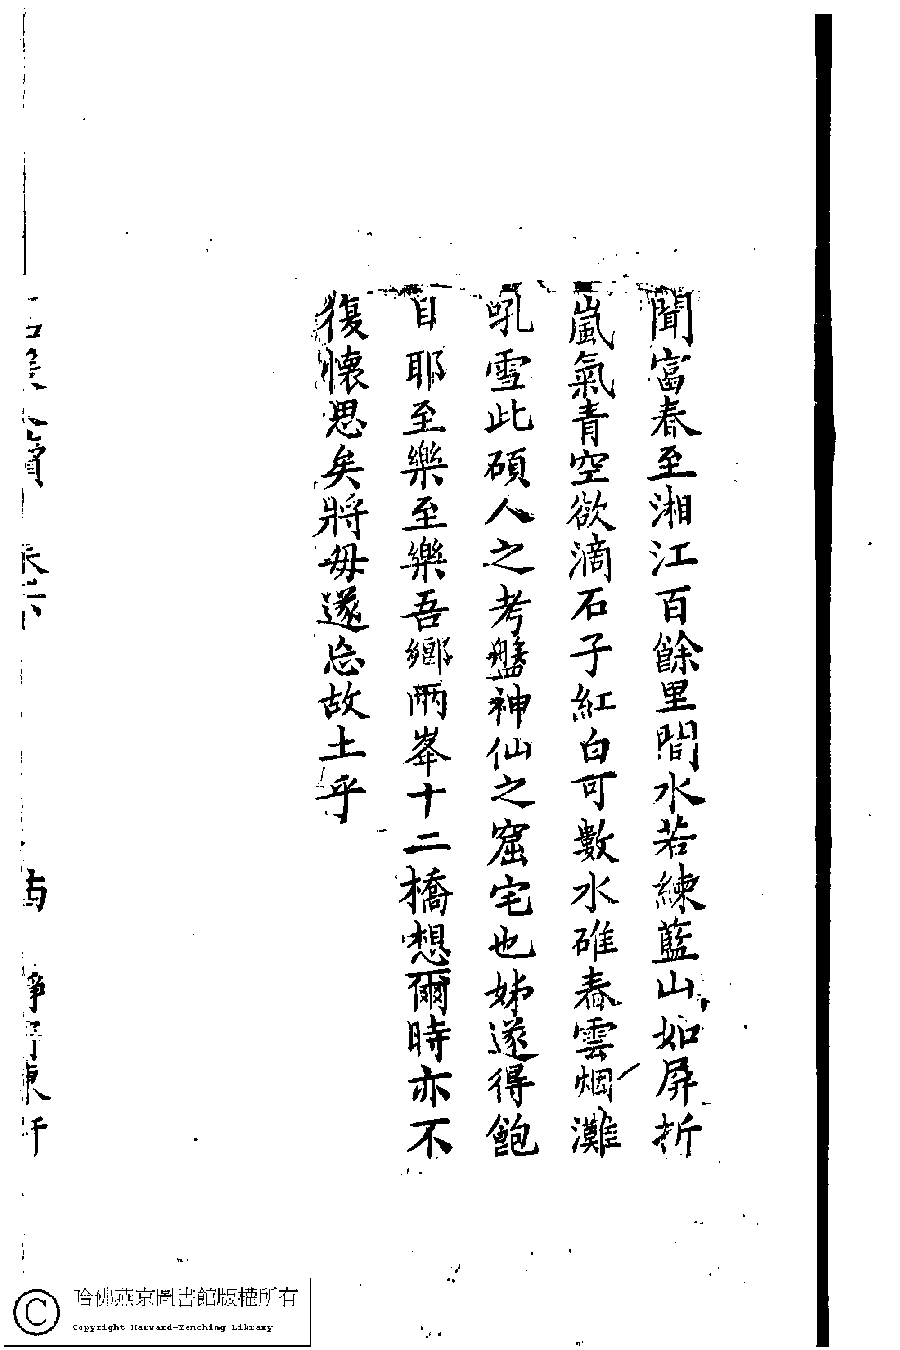 聞富春至湘江百餘里間水若練藍山如屏折
嵐氣青空欲滴石子紅白可數水碓舂雲烟灘
吼雪此碩人之考盤神仙之窟宅也姊遂得飽
目耶至樂至樂吾鄉兩峯十二橋想爾時亦不
復懷思矣將毋遂忘故土乎
哈佛燕京圖書館版權所有
Copyright Harvard-Yenching Library